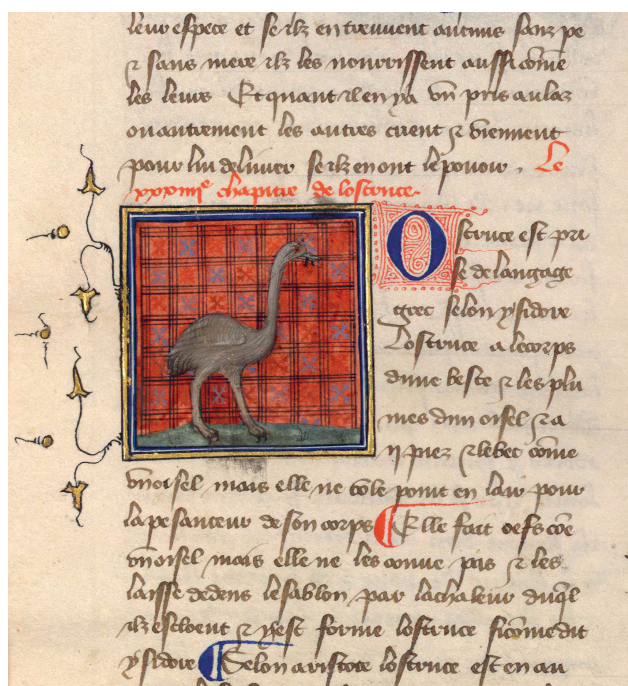 leur espece et se ilz en treuvent aucuns sans pe
⁊ sans mere ilz les nourrissent aussi cōme
les leurs Et quant il en ya vn pris au laz
ou autrement les autres crient ⁊ viennent
pour lui delivrer se ilz en ont le povoir . Le
xxxiiiie chapitre de lostruce
Ostruce est pri
se de langage
grec selon ysidore
Lostruce a le corps
dune beste ⁊ les plu
mes dun oisel ⁊ a
ij piez ⁊ le bec cōme
vn oisel mais elle ne vole point en lair pour
la pesanteur de son corps Elle fait oefs cōe
vn oisel mais elle ne les couve pas ⁊ les
laisse dedens le sablon par la chaleur duql̄
ilz escloent ⁊ y est forme lostruce si cōme dit
ysidore Selon aristote lostruce est en au